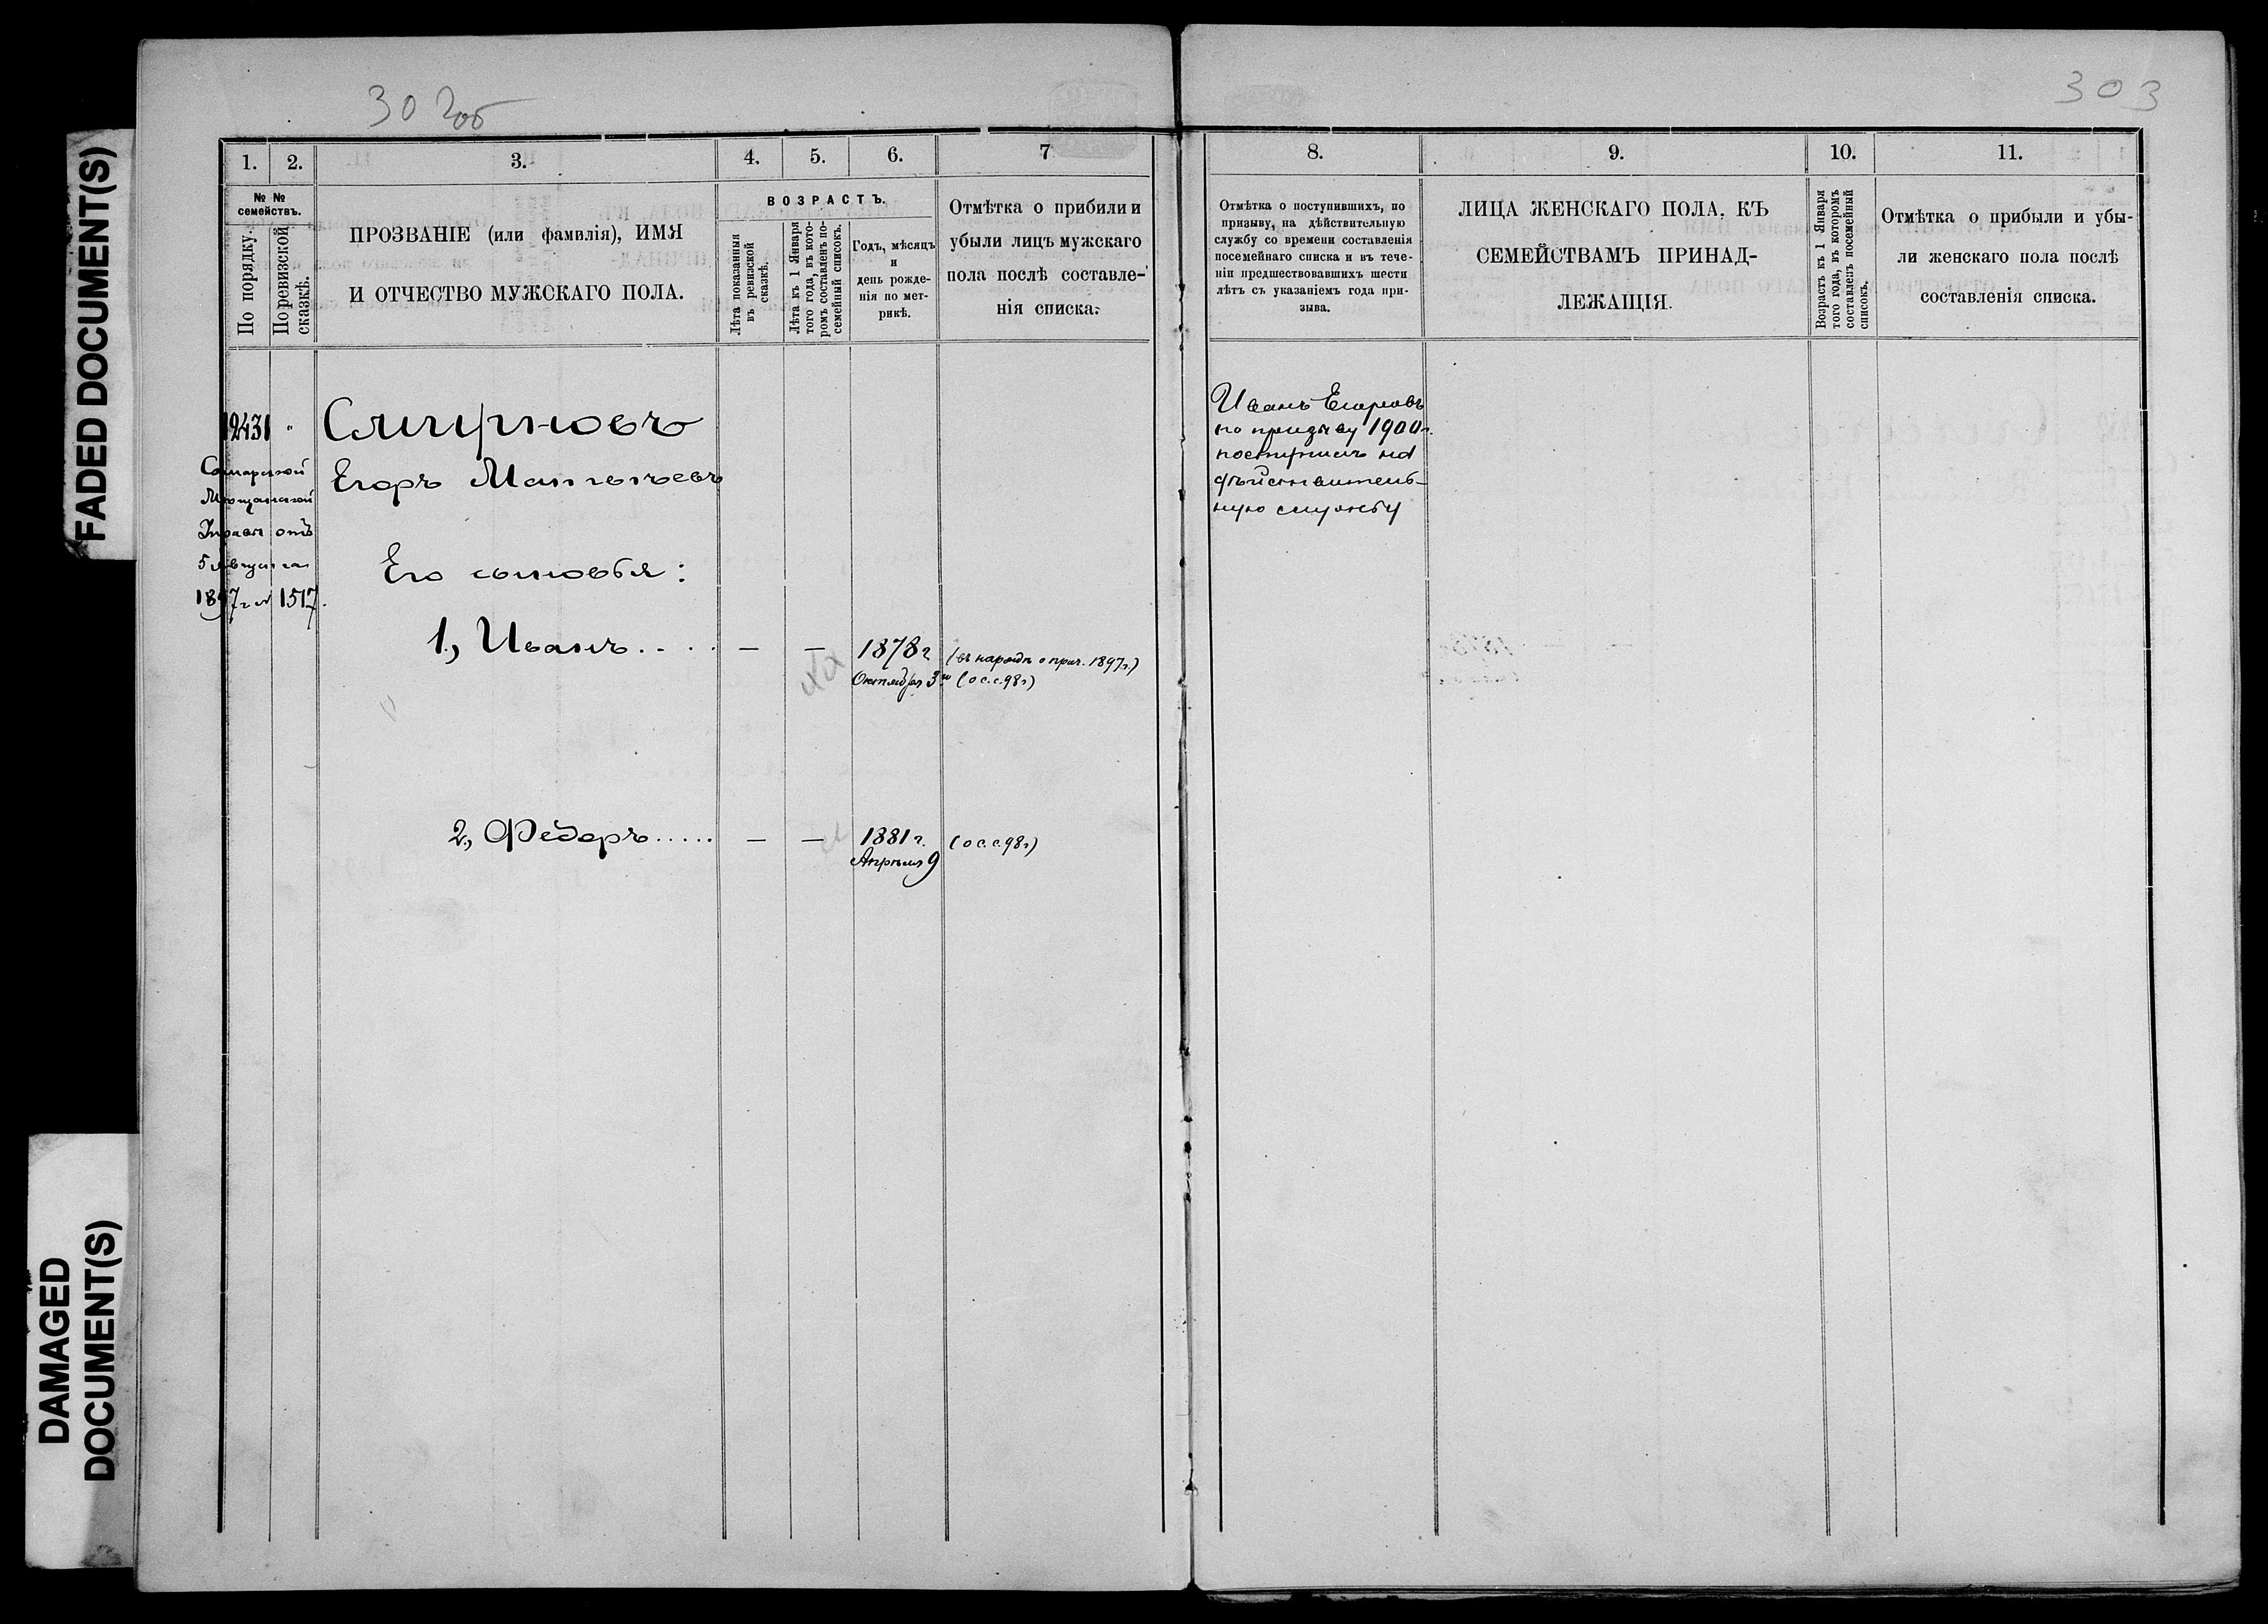 FADED DOCUMENT(S)
DAMAGED
DOCUMENT(S)
302об
303
1. 2. 3. 4. 5. 6. 7
№ №
семействъ.
По порядку.
По ревизской
сказкѣ.
ПРОЗВАНІЕ (или фамилія), ИМЯ
И ОТЧЕСТВО МУЖСКАГО ПОЛА.
ВОЗРАСТЪ.
Лѣта показанныя
въ ревизской
сказкѣ.
Лѣта къ 1 Января
того года, въ кото-
ромъ составленъ по-
семейный списокъ.
Годъ, мѣсяцъ
и
день рожде-
нія по мет-
рикѣ.
Отмѣтка о прибили и
убыли лицъ мужскаго
пола послѣ составле-
нія списка.
12431 "
Самарской
Мѣщанской
Управы отъ
5 Августа
1897 г № 1517.
Смирновъ
Егоръ Матвѣевъ
Его сыновья:
1., Иванъ . . . . — — 1878 г (въ народѣ о прич. 1897 г.)
Октября 3го (о с. с. 98 г)
2., Федоръ ..... — — 1881 г. (о с. с. 98 г)
Апрѣля 9
8. 9. 10. 11.
Отмѣтка о поступившихъ, по
призыву, на дѣйствительную
службу со времени составленія
посемейнаго списка и въ тече-
ніи предшествовавшихъ шести
лѣтъ съ указаніемъ года при-
зыва.
ЛИЦА ЖЕНСКАГО ПОЛА, КЪ
СЕМЕЙСТВАМЪ ПРИНАД-
ЛЕЖАЩІЯ.
Возрастъ къ 1 Января
того года, въ которомъ
составленъ посемейный
списокъ.
Отмѣтка о прибыли и убы-
ли женскаго пола послѣ
составленія списка.
Иванъ Егоровъ
по призыву 1900 г.
поступилъ на
дѣйствитель-
ную службу